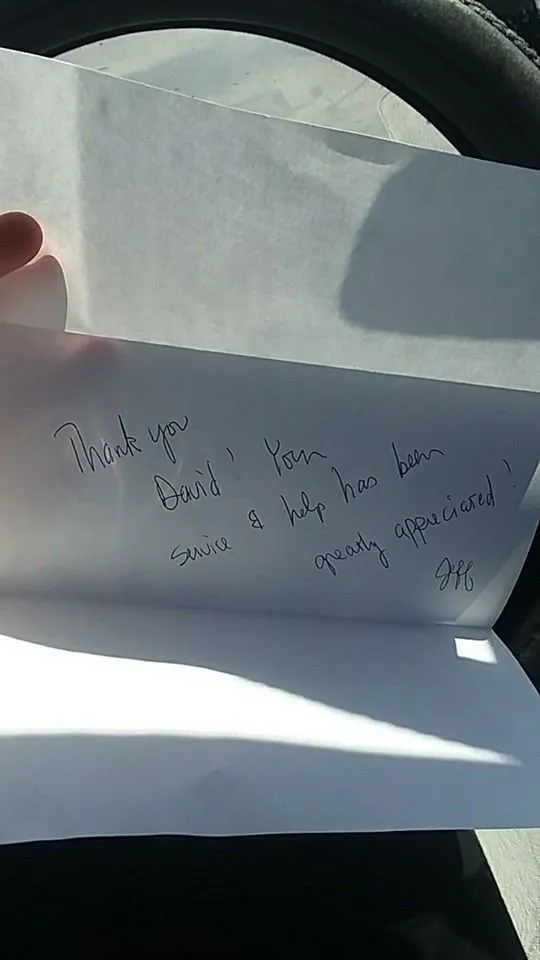 Thank you
David! Your
service & help has been
greatly appreciated!
Jeff